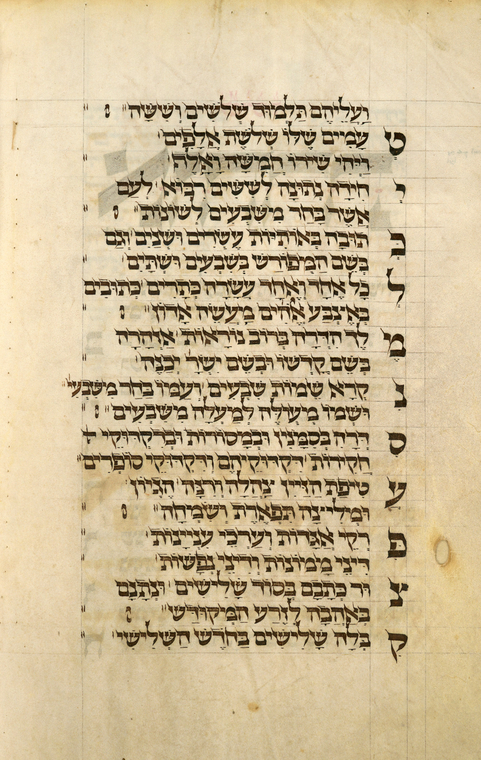 וַעֲלֵיהֶם תַּלְמוּד שְׁלֹשִׁים וְשִׁשָּׁה
ט עֲמָים שֶׁלּוֹ שְׁלֹשֶׁת אֲלָפִים
וַיְהִי שִׁירוֹ חֲמִשָּׁה וָאָלֶף
י חִידָה נְתוּנָה לְשִׁשִּׁים רִבּוֹא לְעַם
אֲשֶׁר בָּחַר מִשִּׁבְעִים לְשׁוֹנוֹת
כ תּוֹרָה בְּאוֹתִיּוֹת עֶשְׂרִים וּשְׁנַיִם וְגַם
בְּשֵׁם הַמְפוֹרָשׁ בְּשִׁבְעִים וּשְׁתַּיִם
ל כָּל אֶחָד וְאֶחָד עֲשָׂרָה כְּתָרִים כְּתוּבִים
בְּאֶצְבַּע אֱלֹהִים מַעֲשֵׂה
מ לְךָ בְּרוֹב נוֹרָאוֹת אַזְהָרָה
בְּשֵׁם קָדְשׁוֹ וּבְשֵׁם יִשְׂרָ יְכַנֶּה
נ קָרָא שֵׁמוֹת שִׁבְעִים וְעַמּוֹ בָּחַר מִשִּׁבְעִ
וּשְׁמוֹ מְעוּלֶּה לְמַעְלָה מִשִּׁבְעִים
ס וּבְמָסוֹרוֹת וּבְדִקְדּוּקֵי
חֲקִירוֹת דִּקְדּוּקֵיהֶם וְדִקְדּוּקֵי סוֹפְרִים
ע טִיפַּת הַזַּיִן
תִּפְאֶרֶת וְשִׂמְחָה
פ רְקֵי אַגָּדוֹת וְעֶרְכֵי עִנְיָינוֹת
דִּינֵי מָמוֹנוֹת וְדִינֵי נְפָשׁוֹת
צ וּר כְּתָבָם בְּסוֹד שָׁלִישִׁים וּנְתָנָם
בְּאַהֲבָה לְזֶרַע הַמְקוּדָּשׁ
ק בָּלָה שָׁלִישִׁים בַּחֹדֶשׁ הַשְּׁלִישִׁי